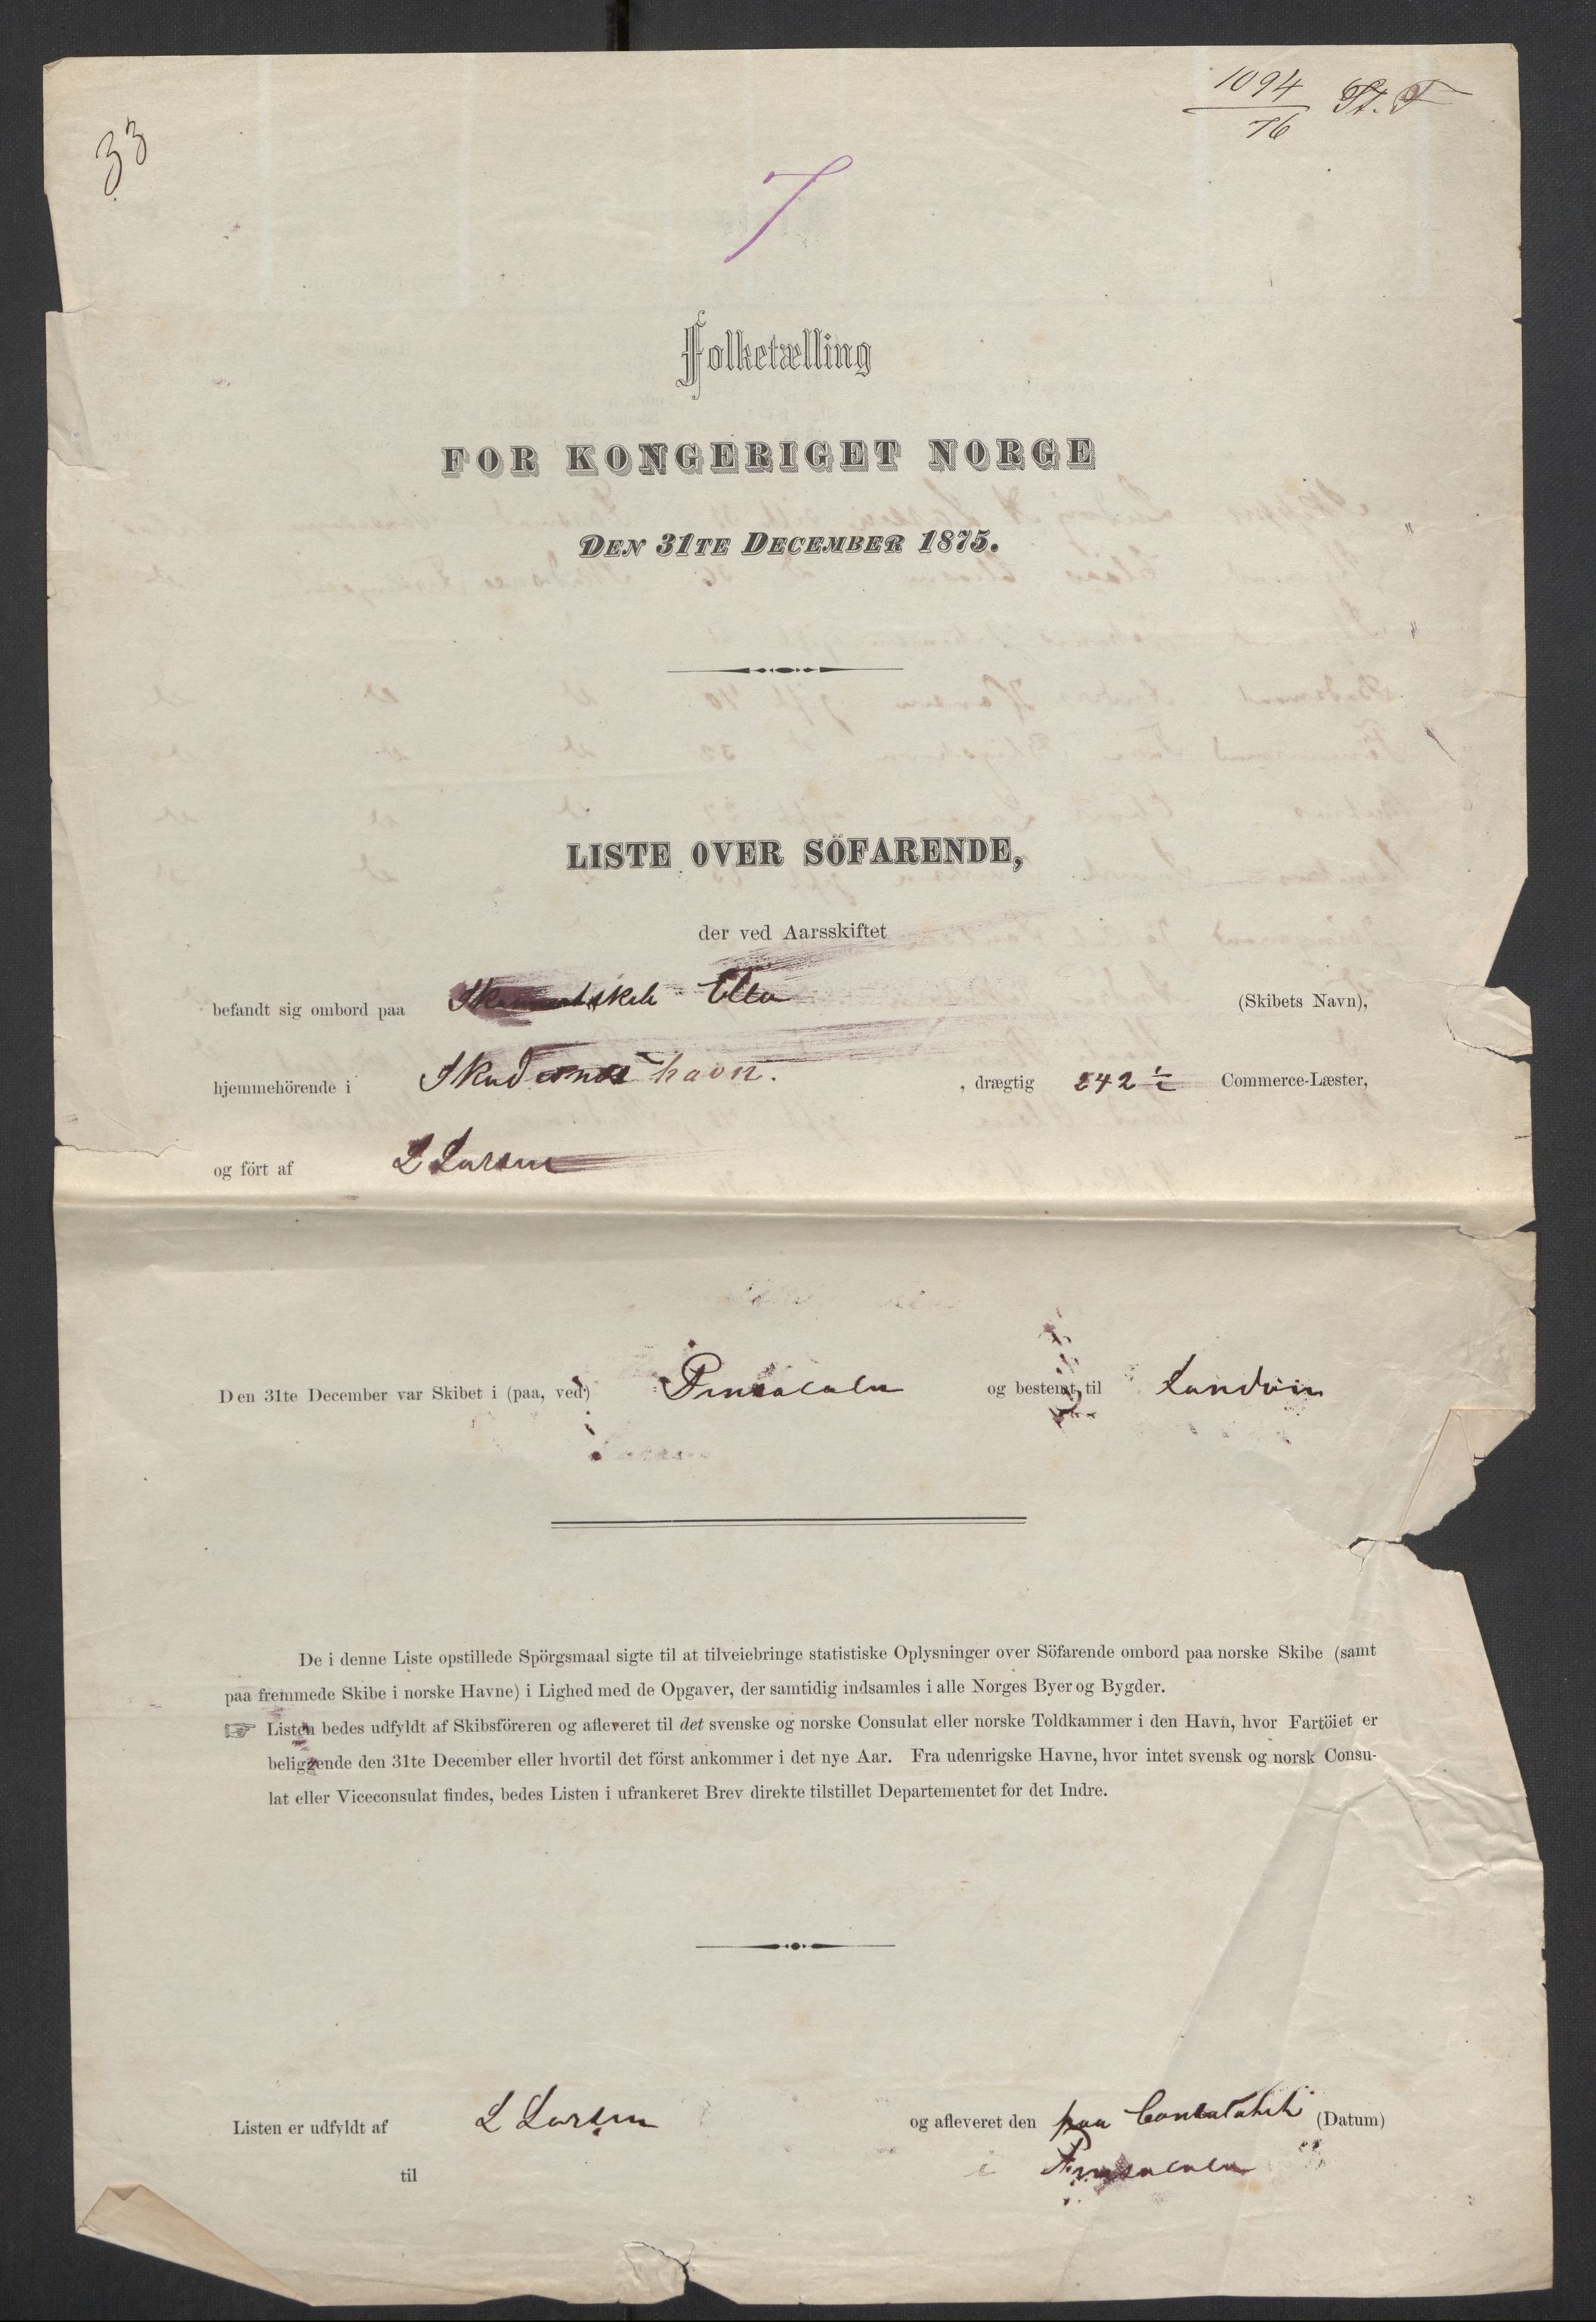 33
1094 St. F
76
7
Folketælling
FOR KONGERIGET NORGE
DEN 31TE DECEMBER 1875.
LISTE OVER SÖFARENDE,
der ved Aarsskiftet
befandt sig ombord paa Ella (Skibets Navn),
hjemmehörende i Skudesneshavn. , drægtig 242 1/2 Commerce-Læster,
og fört af L Larsen
Den 31te December var Skibet i (paa, ved) Pensacola og bestemt til London
De i denne Liste opstillede Spörgsmaal sigte til at tilveiebringe statistiske Oplysninger over Söfarende ombord paa norske Skibe (samt
paa fremmede Skibe i norske Havne) i Lighed med de Opgaver, der samtidig indsamles i alle Norges Byer og Bygder.
☞ Listen bedes udfyldt af Skibsföreren og afleveret til det svenske og norske Consulat eller norske Toldkammer i den Havn, hvor Fartöiet er
beliggende den 31te December eller hvortil det först ankommer i det nye Aar. Fra udenrigske Havne, hvor intet svensk og norsk Consu-
lat eller Viceconsulat findes, bedes Listen i ufrankeret Brev direkte tilstillet Departementet for det Indre.
Listen er udfyldt af L Larsen og afleveret den paa Consulatet (Datum)
til i Pensacola